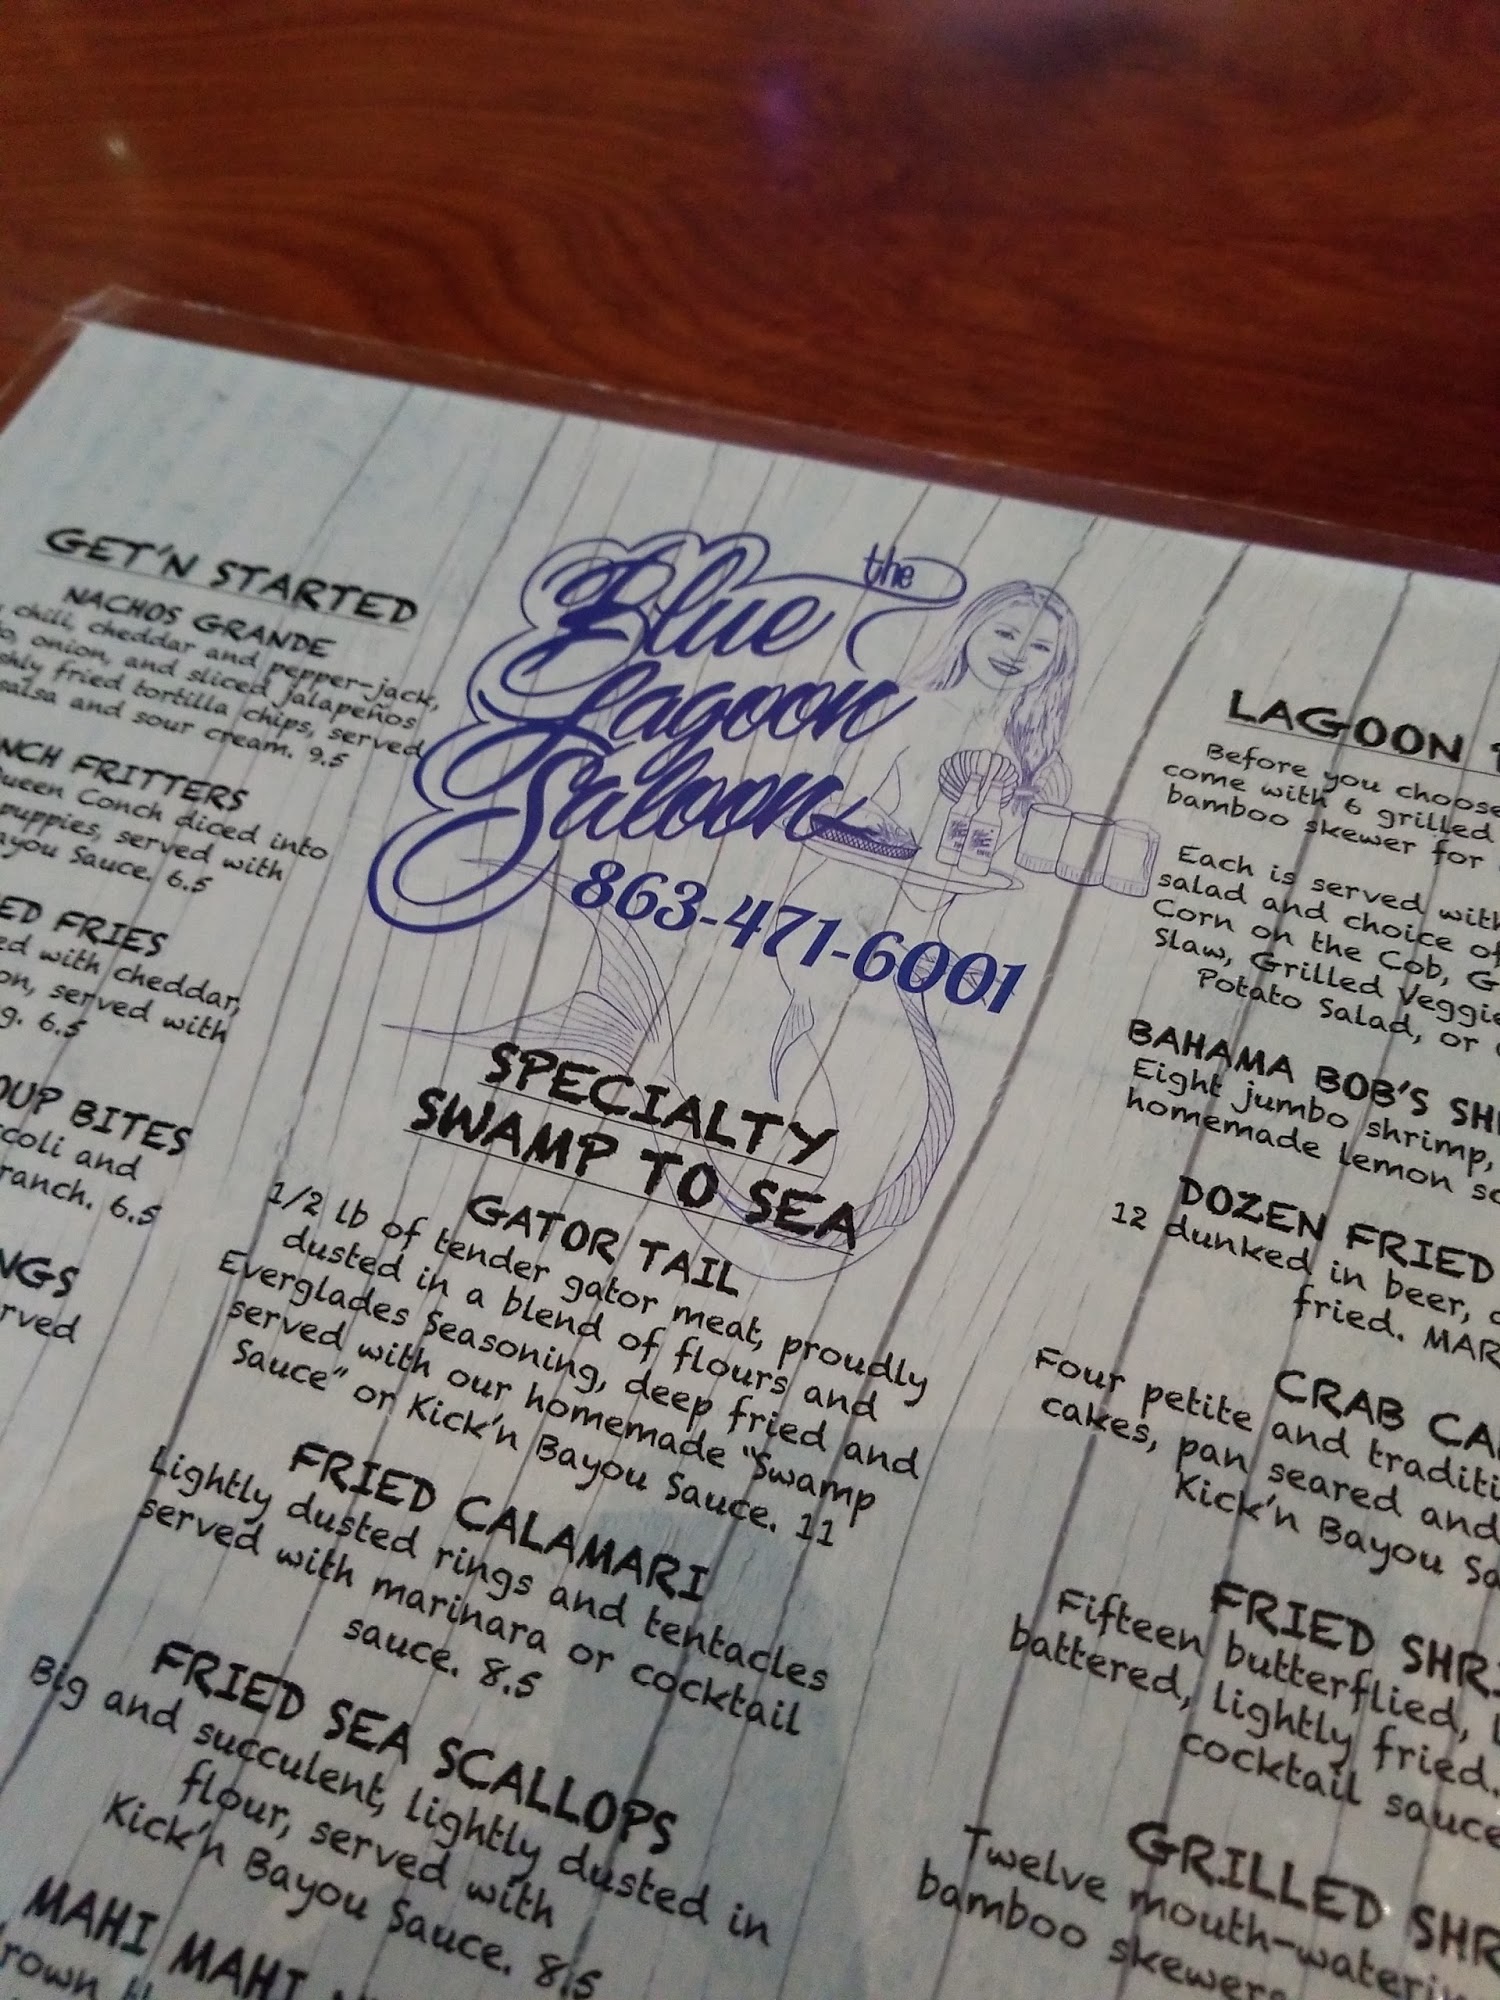 GET'N STARTED
NACHOS GRANDE
chili, cheddar and pepper-jack,
onion, and sliced jalapeños
fried tortilla chips, served
salsa and sour cream. 9.5
FRITTERS
Queen Conch diced into
puppies, served with
Sauce. 6.5
FRIES
with cheddar,
served with
6.5
BITES
and
ranch. 6.5
the
Blue
Lagoon
Saloon
863-471-6001
SPECIALTY
SWAMP TO SEA
GATOR TAIL
1/2 lb of tender gator meat, proudly
dusted in a blend of flours and
Everglades Seasoning, deep fried and
served with our homemade "Swamp
Sauce" or Kick'n Bayou Sauce. 11
FRIED CALAMARI
Lightly dusted rings and tentacles
served with marinara or cocktail
sauce. 8.5
FRIED SEA SCALLOPS
Big and succulent, lightly dusted in
flour, served with
Kick'n Bayou Sauce. 8.5
MAHI MAHI
LAGOON
Before you choose
come with 6 grilled
bamboo skewer for
Each is served with
salad and choice of
Corn on the Cob,
Slaw, Grilled Veggie
Potato Salad, or
BAHAMA BOB'S
Eight jumbo shrimp,
homemade lemon
DOZEN FRIED
12 dunked in beer,
fried.
CRAB
Four petite and
cakes, pan seared and
Kick'n Bayou
FRIED
Fifteen butterflied,
battered, lightly fried.
cocktail sauce
GRILLED
Twelve mouth-watering
bamboo skewers